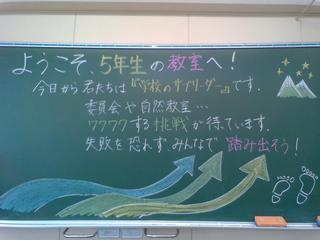 ようこそ、5年生の教室へ!
今日から君たちは『学校のサブリーダー』です。
委員会や自然教室…
ワクワクする挑戦が待っています。
失敗を恐れず、みんなで踏み出そう!